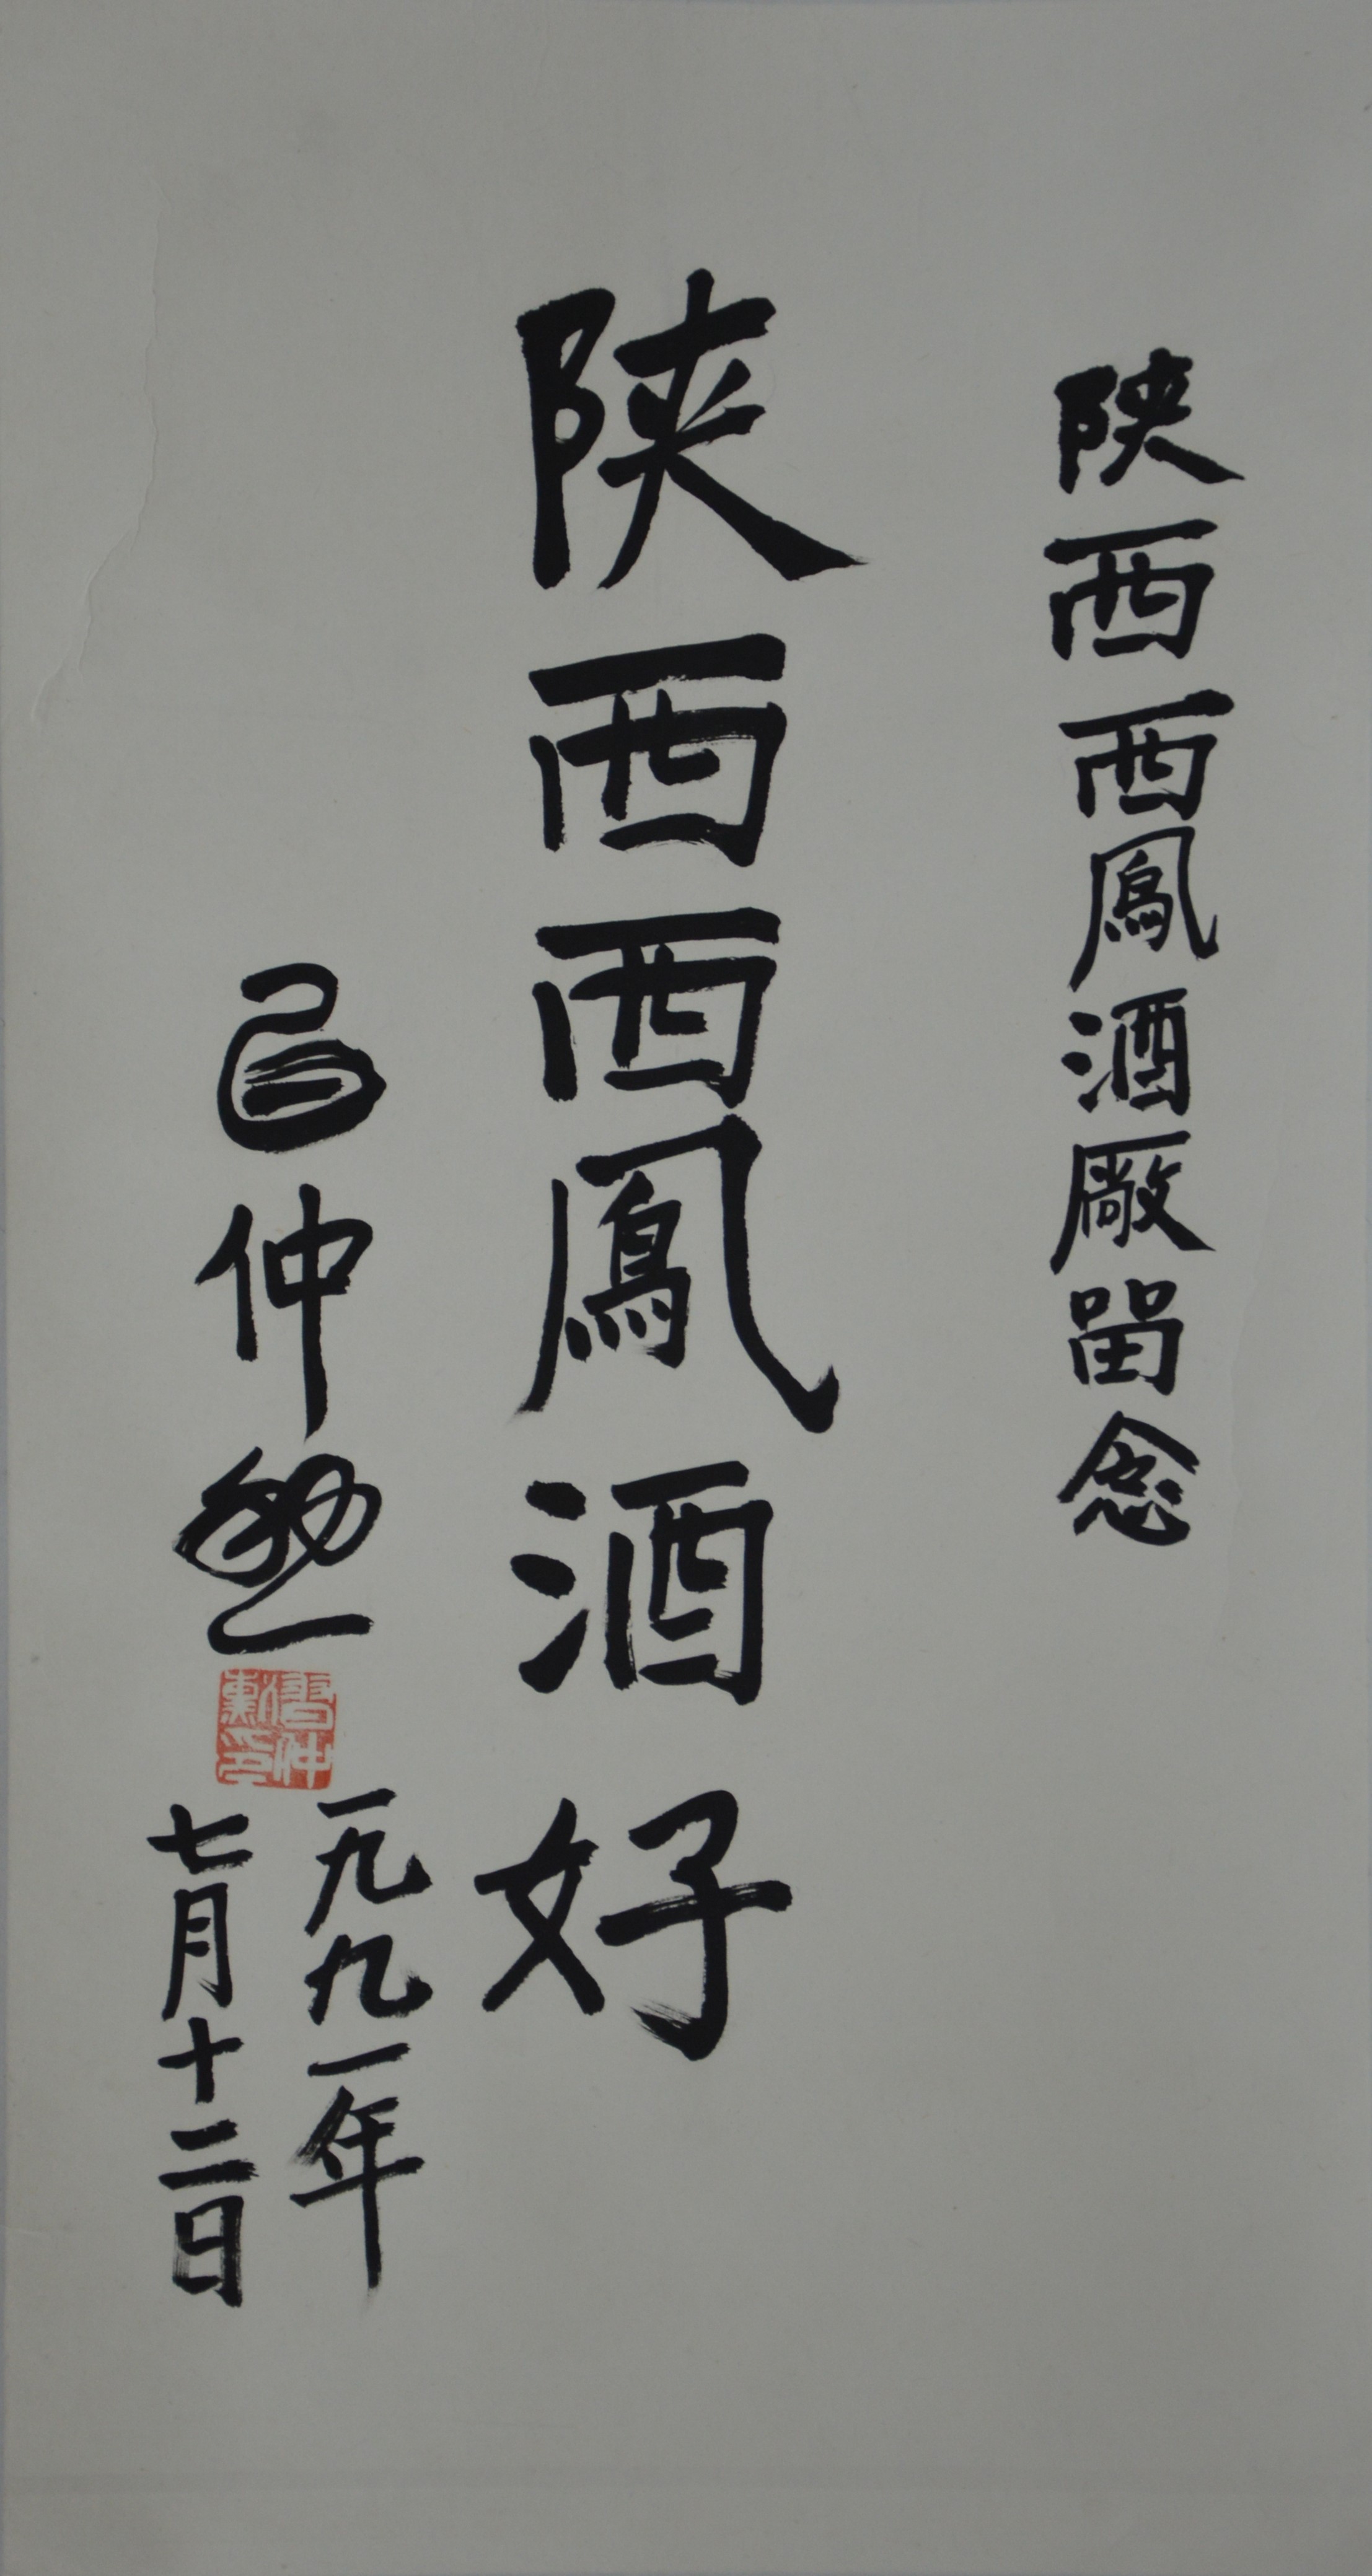 陕西西鳳酒廠留念
陕西西鳳酒好
仲勳
仲勳印
一九九一年
七月十二日